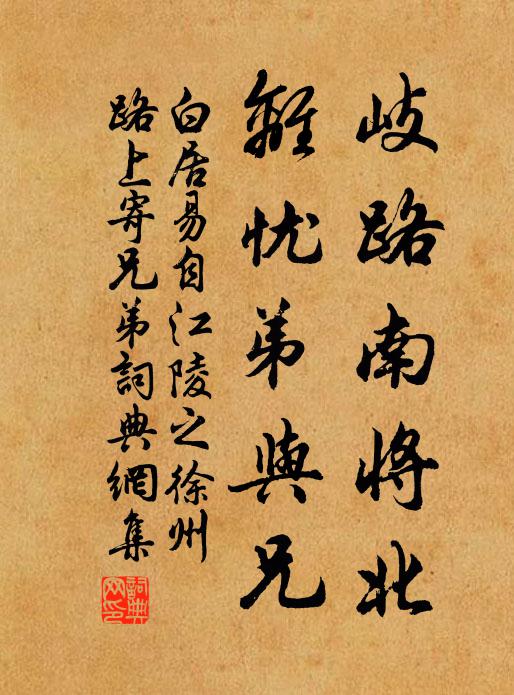 歧路南將北
離忧弟與兄
白居易自江陵之徐州
路上寄兄弟詞典網集
詞典網印